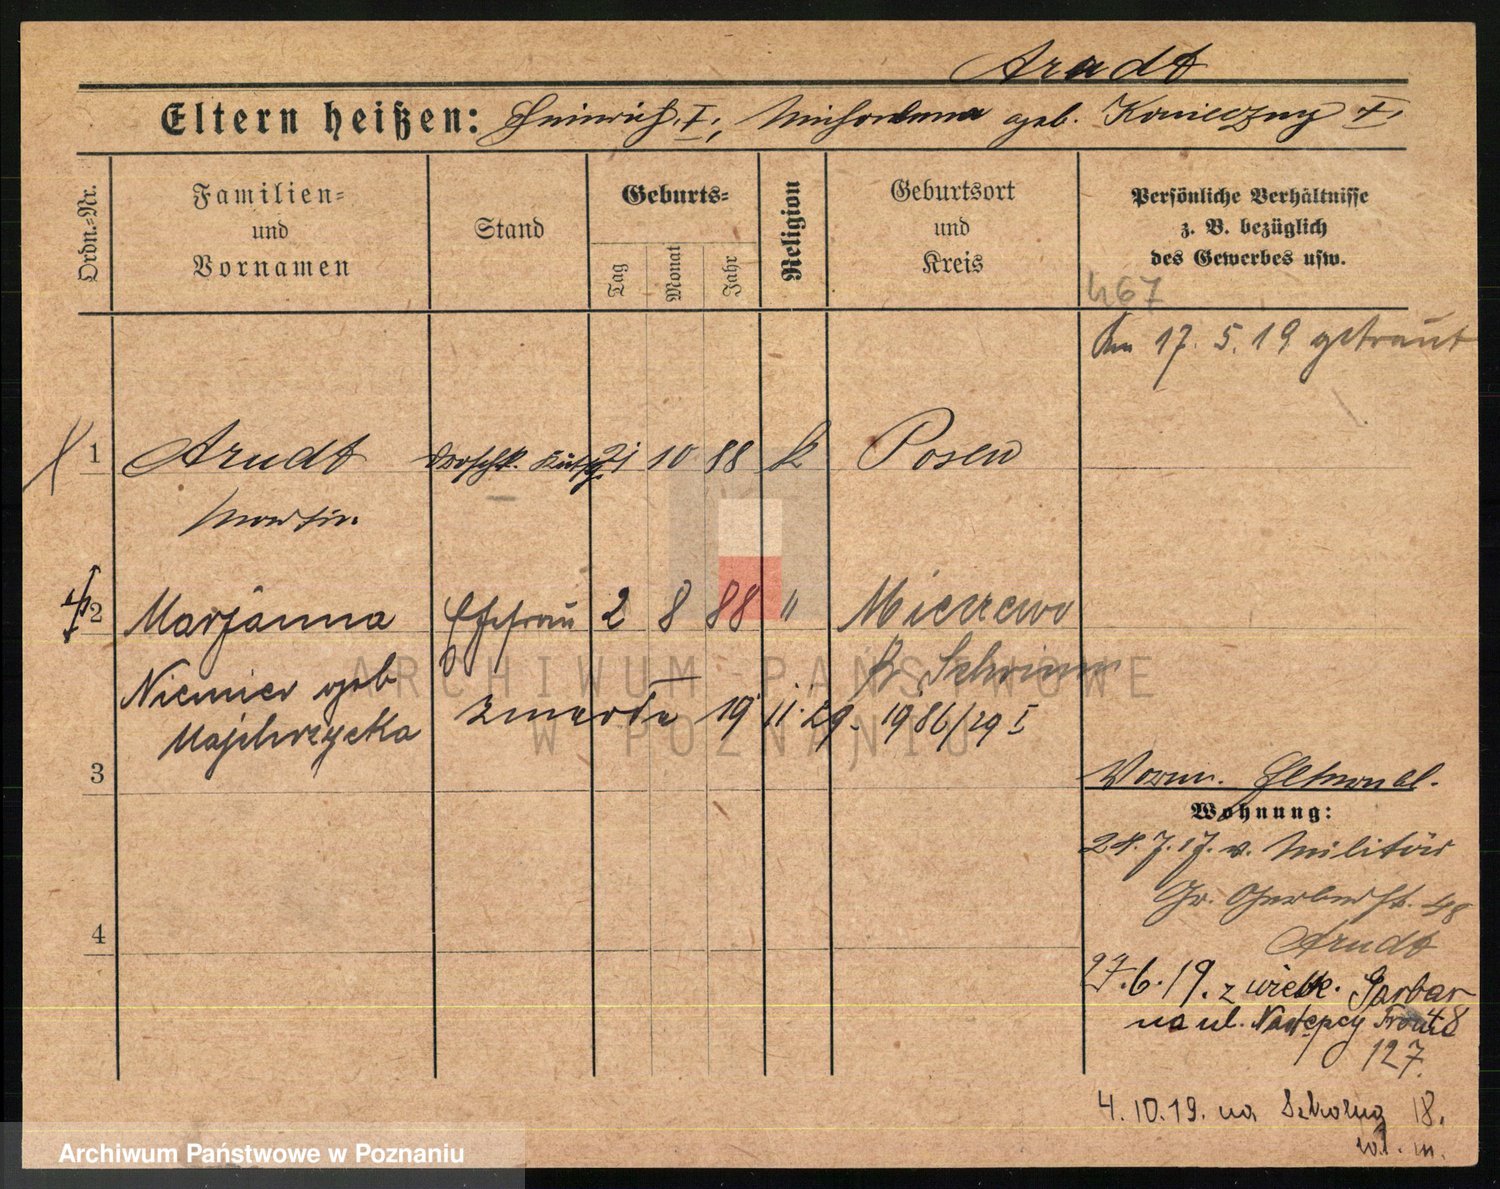 Arndt
Eltern heißen: Heinrich geb. Konieczny
Ordn.-Nr.
Familien-
und
Vornamen
Stand
Geburts-
Tag
Monat
Jahr
Religion
Geburtsort
und
Kreis
Persönliche Verhältnisse
z. B. bezüglich
des Gewerbes usw.
467
Am 17. 5. 19 getraut
1 Arndt 10 88 k Posen
Martin
2 Marjanna Ehefrau 2 8 88 " Mieczewo
Kr. Schrimm
Niemier geb
Majchrzycka
zmarła 19 11. 29. 1986/29 I
3
Wohnung:
28. 7. 17. v. Militär
Gr. Gerberst. 48
Arndt
4
27. 6. 19. z wielk. Garbar 48
na ul. Następcy Tronu
127
4. 10. 19. na Szkolną 18.
w. m.
ARCHIWUM PAŃSTWOWE
W POZNANIU
Archiwum Państwowe w Poznaniu